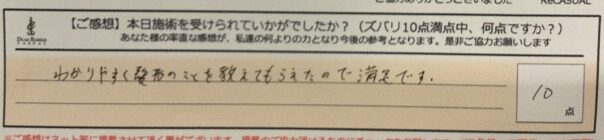 【ご感想】本日施術を受けられていかがでしたか？（ズバリ10点満点中、何点ですか？）
あなた様の率直な感想が、私達の何よりの力となり今後の参考となります。是非ご協力お願いします
わかりやすく整形のことを教えてもらえたので満足です。
10
点